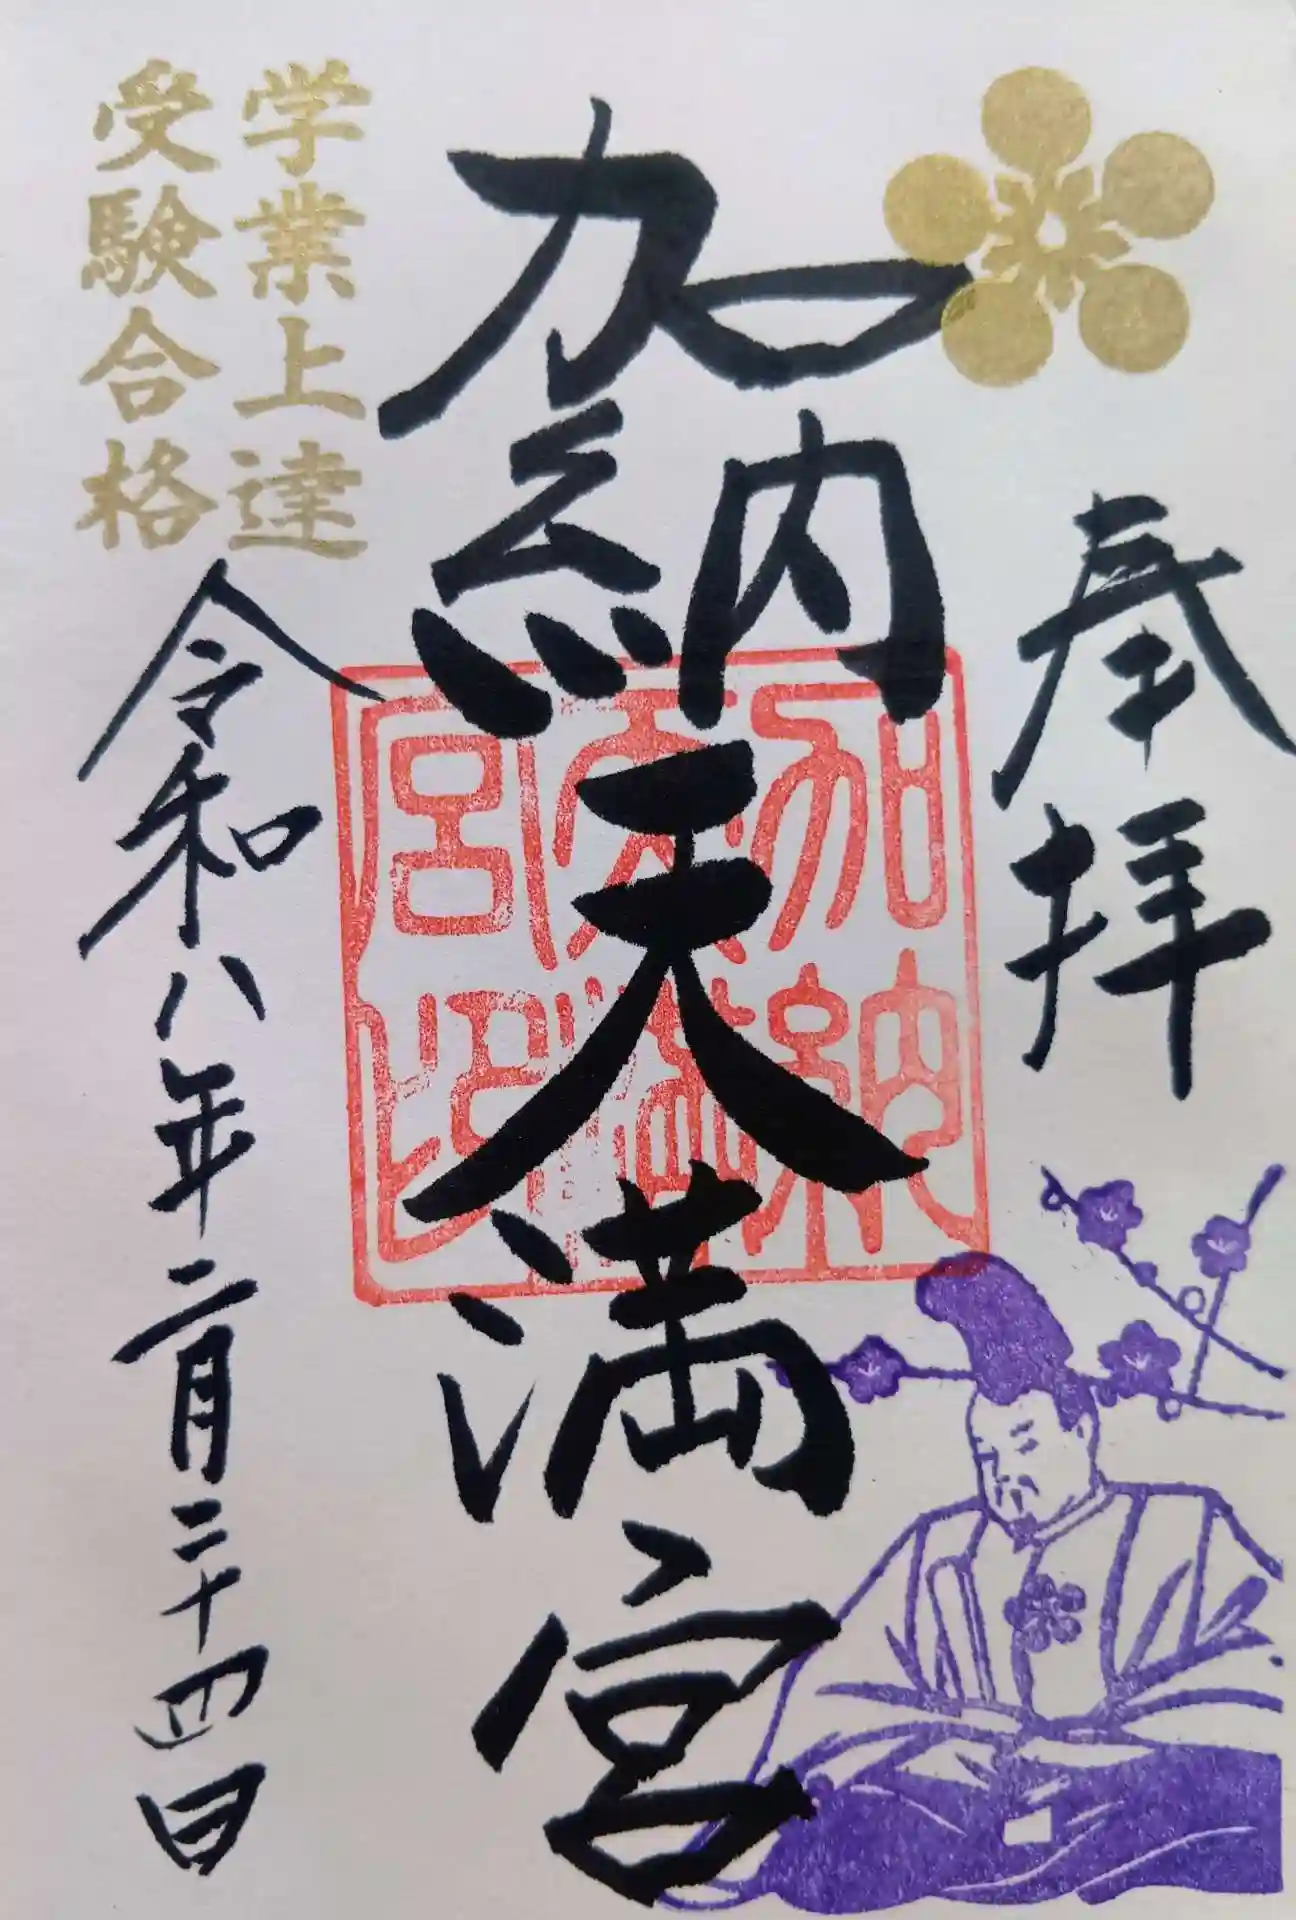 奉拝
加納天満宮
加納天満宮印
学業上達
受験合格
令和八年二月二十四日